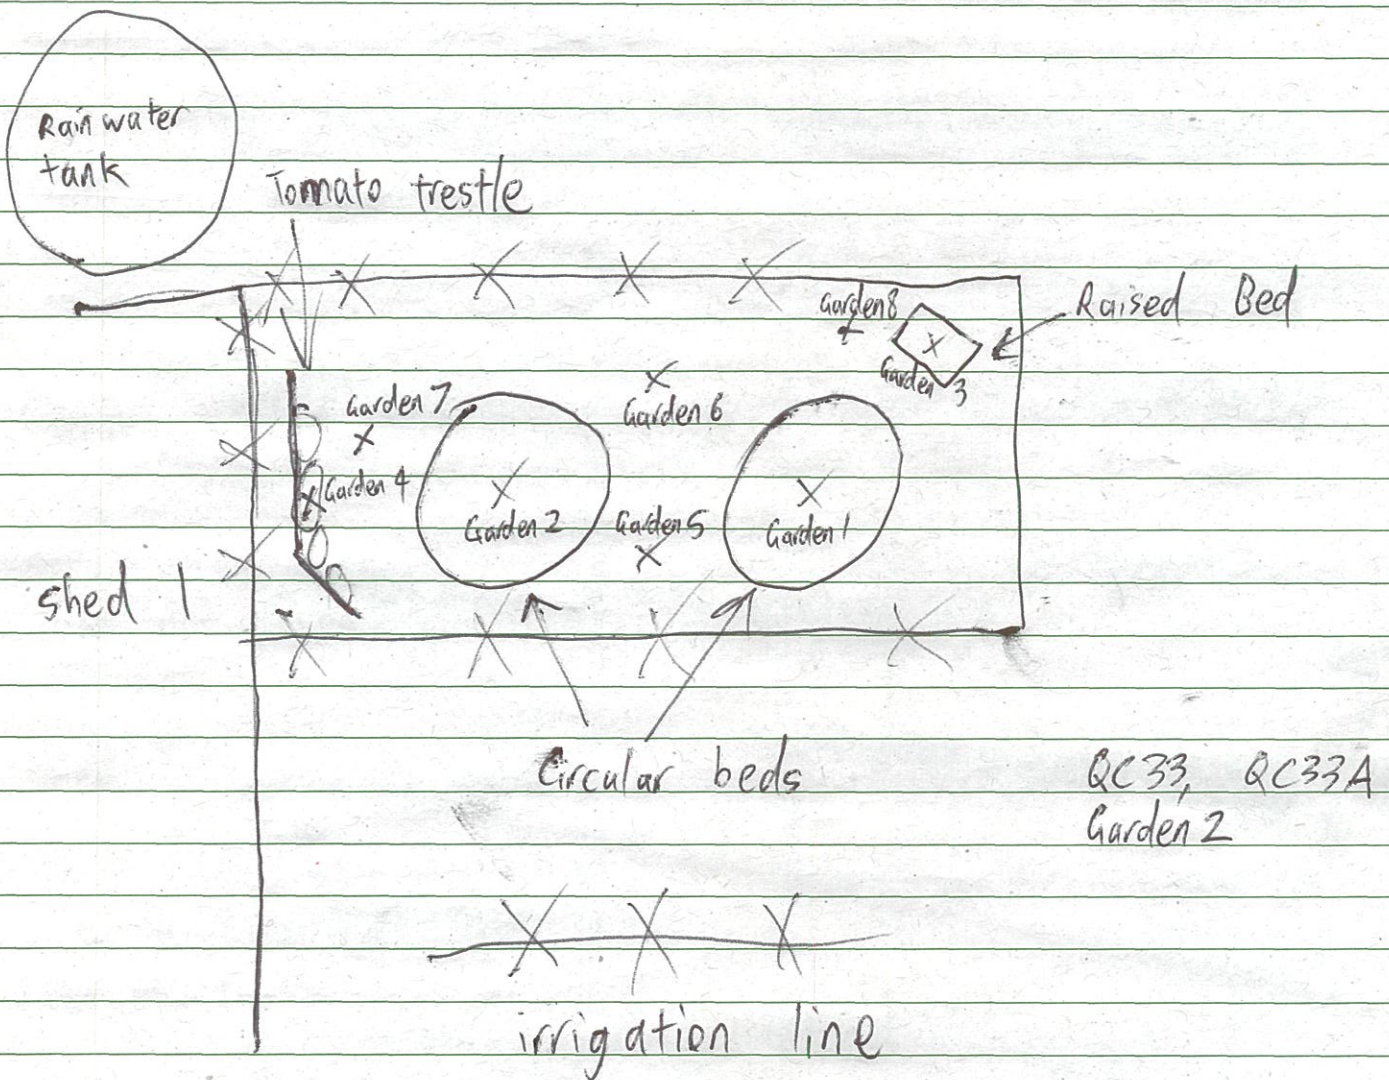 Rain water
tank
Tomato trestle
Garden 8
Raised Bed
Garden 3
Garden 7
Garden 6
Garden 4
Garden 2
Garden 5
Garden 1
shed 1
Circular beds
QC33, QC33A
Garden 2
irrigation line